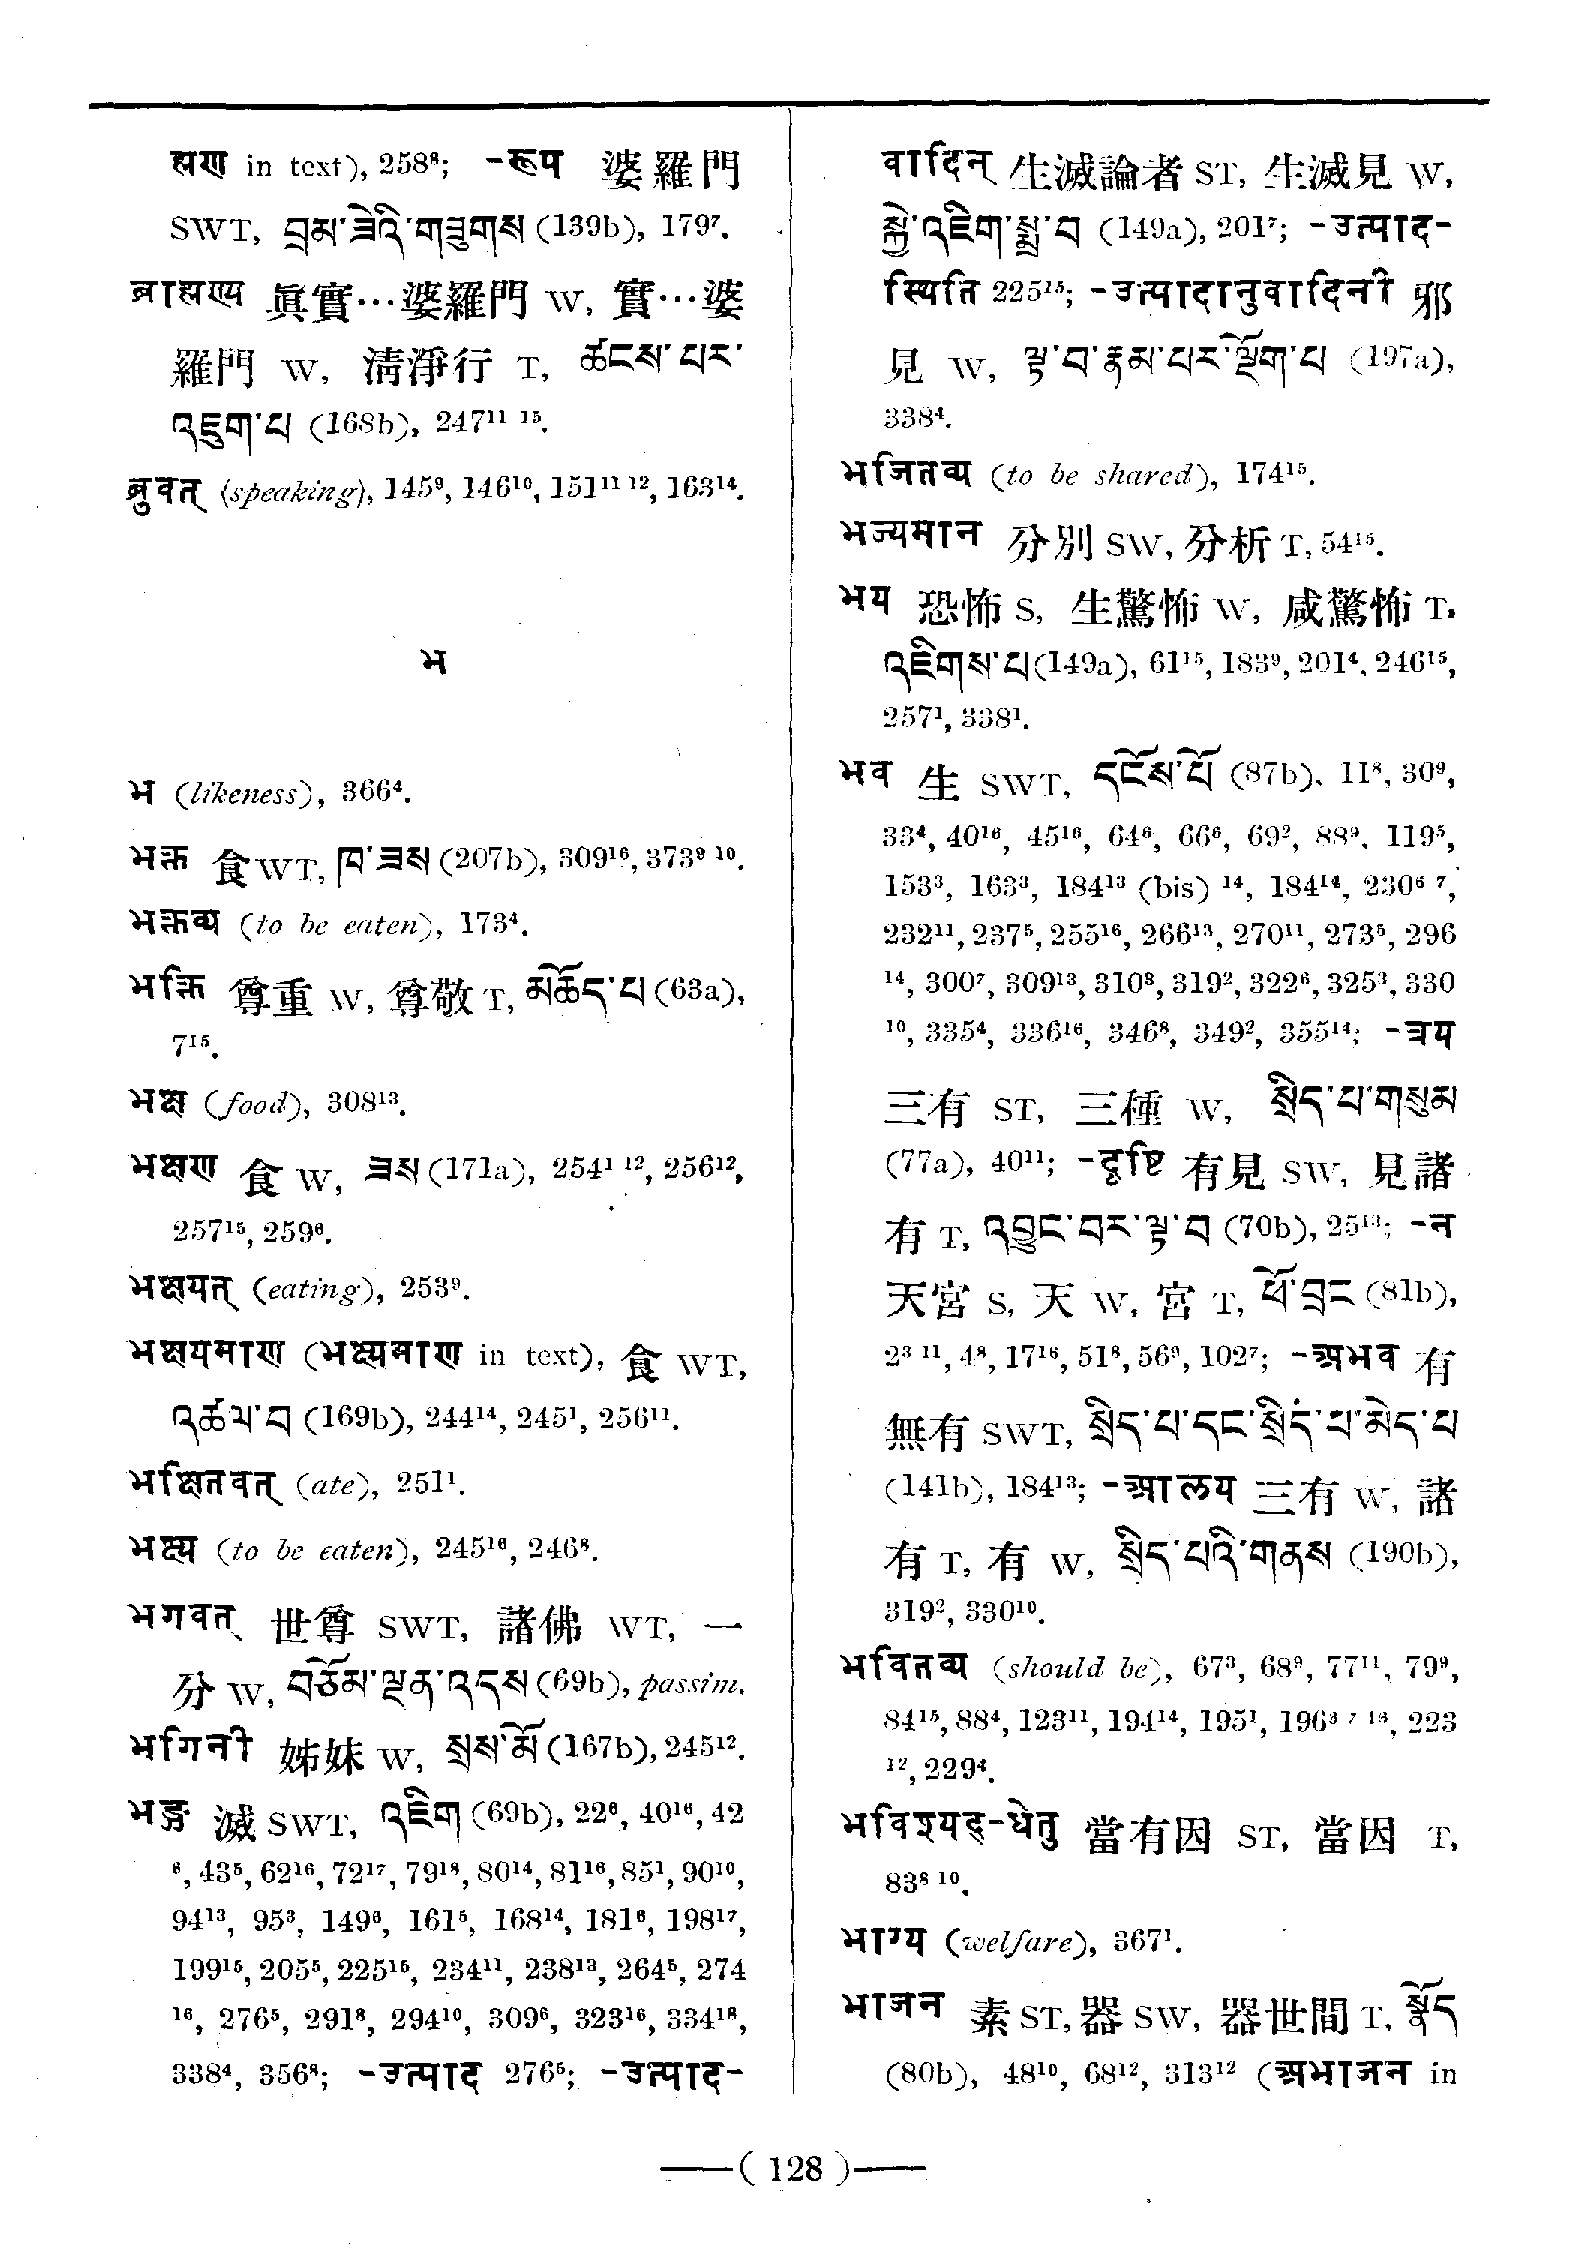 ह्मण in text), 258⁸; -रूप 婆羅門
SWT, བྲམ་ཟེའི་གཟུགས (139b), 179⁷.
ब्राह्मण्य 眞實…婆羅門 W, 實…婆
羅門 W, 淸淨行 T, ཚངས་པར་
འཇུག་པ (168b), 247¹¹ ¹⁵.
ब्रुवत् (speaking), 145⁹, 146¹⁰, 151¹¹ ¹², 163¹⁴.
भ
भ (likeness), 366⁴.
भक्त 食 WT, ཁ་ཟས (207b), 309¹⁶, 373⁹ ¹⁰.
भक्तव्य (to be eaten), 173⁴.
भक्ति 尊重 W, 尊敬 T, མཆོད་པ (63a),
7¹⁵.
भक्ष (food), 308¹³.
भक्षण 食 W, ཟས (171a), 254¹ ¹², 256¹²,
257¹⁵, 259⁶.
भक्षयत् (eating), 253⁹.
भक्षयमाण (भक्ष्यमाण in text), 食 WT,
འཚལ་བ (169b), 244¹⁴, 245¹, 256¹¹.
भक्षितवत् (ate), 251¹.
भक्ष्य (to be eaten), 245¹⁶, 246⁸.
भगवत् 世尊 SWT, 諸佛 WT, 一
分 W, བཅོམ་ལྡན་འདས (69b), passim.
भगिनी 姊妹 W, སྲས་མོ (167b), 245¹².
भङ्ग 滅 SWT, འཇིག (69b), 22⁶, 40¹⁶, 42
⁶, 43⁵, 62¹⁶, 72¹⁷, 79¹⁸, 80¹⁴, 81¹⁶, 85¹, 90¹⁰,
94¹³, 95³, 149⁶, 161⁵, 168¹⁴, 181⁶, 198¹⁷,
199¹⁵, 205⁵, 225¹⁵, 234¹¹, 238¹³, 264⁵, 274
¹⁶, 276⁵, 291⁸, 294¹⁰, 309⁶, 323¹⁶, 334¹⁸,
338⁴, 356⁸; -उत्पाद 276⁵; -उत्पाद-
वादिन् 生滅論者 ST, 生滅見 W,
སྐྱེ་འཇིག་སྨྲ་བ (149a), 201⁷; -उत्पाद-
स्थिति 225¹⁵; -उत्पादानुवादिनी
見 W, ལྟ་བ་རྣམ་པར་ལྡོག་པ (197a),
338⁴.
भजितव्य (to be shared), 174¹⁵.
भज्यमान 分別 SW, 分析 T, 54¹⁵.
भय 恐怖 S, 生驚怖 W, 咸驚怖 T.
འཇིགས་པ (149a), 61¹⁵, 183⁹, 201⁴, 246¹⁵,
257¹, 338¹.
भव 生 SWT, དངོས་པོ (87b), 11⁸, 30⁹,
33⁴, 40¹⁶, 45¹⁶, 64⁶, 66⁶, 69², 88⁹, 119⁵,
153³, 163³, 184¹³ (bis) ¹⁴, 184¹⁴, 230⁶ ⁷,
232¹¹, 237⁵, 255¹⁶, 266¹³, 270¹¹, 273⁵, 296
¹⁴, 300⁷, 309¹³, 310⁸, 319², 322⁶, 325³, 330
¹⁰, 335⁴, 336¹⁶, 346⁸, 349², 355¹⁴; -त्रय
三有 ST, 三種 W, སྲིད་པ་གསུམ
(77a), 40¹¹; -दृष्टि 有見 SW, 見諸
有 T, འབྱུང་བར་ལྟ་བ (70b), 25¹³; -न
天宮 S, 天 W, 宮 T, ཕོ་བྲང (81b),
2³ ¹¹, 4⁸, 17¹⁶, 51⁸, 56⁹, 102⁷; -अभव 有
無有 SWT, སྲིད་པ་དང་སྲིད་པ་མེད་པ
(141b), 184¹³; -आलय 三有 W, 諸
有 T, 有 W, སྲིད་པའི་གནས (190b),
319², 330¹⁰.
भवितव्य (should be), 67³, 68⁹, 77¹¹, 79⁹,
84¹⁵, 88⁴, 123¹¹, 194¹⁴, 195¹, 196³ ⁷ ¹³, 223
¹², 229⁴.
भविश्यद्-धेतु 當有因 ST, 當因 T,
83⁸ ¹⁰.
भाग्य (welfare), 367¹.
भाजन 素 ST, 器 SW, 器世間 T, སྣོད
(80b), 48¹⁰, 68¹², 313¹² (अभाजन in
( 128 )